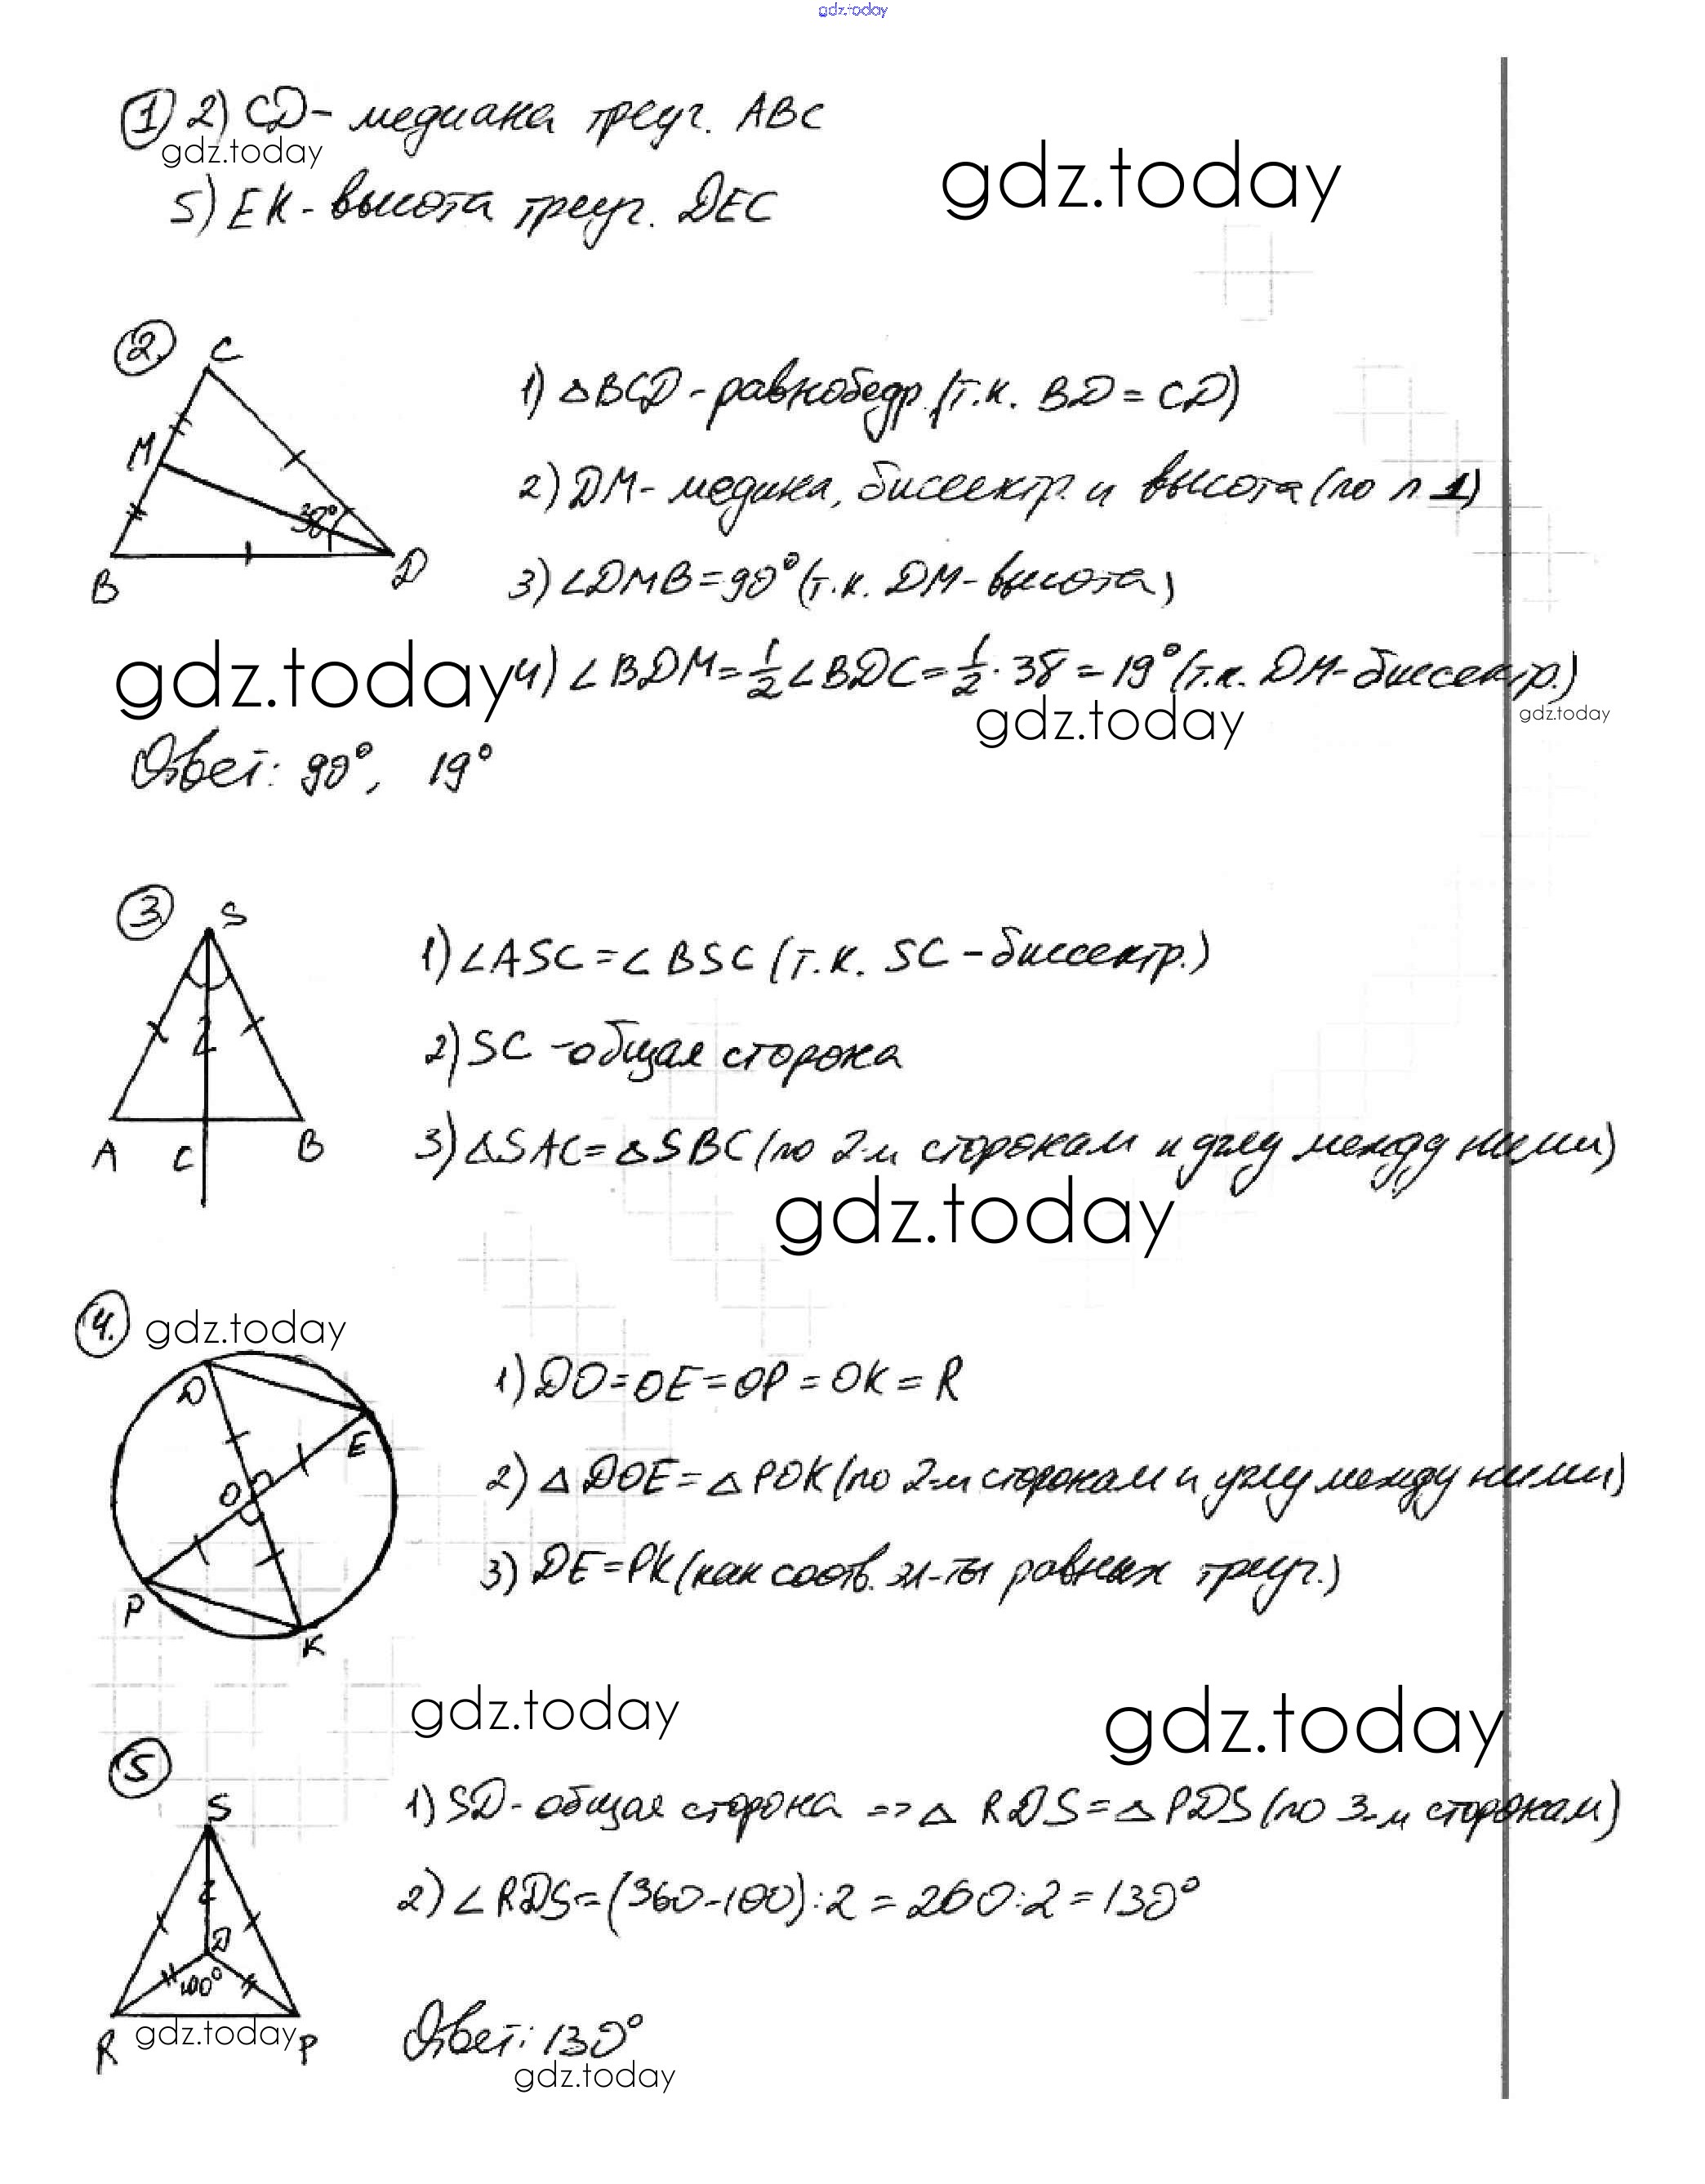 gdz.today
① 2) CD - медиана треуг. ABC
gdz.today
gdz.today
5) EK - высота треуг. DEC
②
C
M
38°
B
D
1) △BCD - равнобедр. (т.к. BD = CD)
2) DM - медина, биссектр. и высота (по п. 1)
3) ∠DMB = 90° (т.к. DM - высота)
gdz.today
4) ∠BDM = 1/2 ∠BDC = 1/2 · 38 = 19° (т.к. DM - биссектр.)
gdz.today
gdz.today
Ответ: 90°, 19°
③
S
A
C
B
1) ∠ASC = ∠BSC (т.к. SC - биссектр.)
2) SC - общая сторона
3) △SAC = △SBC (по 2-м сторонам и углу между ними)
gdz.today
④.
gdz.today
D
E
O
P
K
1) DO = OE = OP = OK = R
2) △DOE = △POK (по 2-м сторонам и углу между ними)
3) DE = PK (как соотв. эл-ты равных треуг.)
gdz.today
gdz.today
⑤
S
D
100°
R
P
1) SD - общая сторона => △RDS = △PDS (по 3-м сторонам)
2) ∠RDS = (360 - 100) : 2 = 260 : 2 = 130°
gdz.today
Ответ: 130°
gdz.today